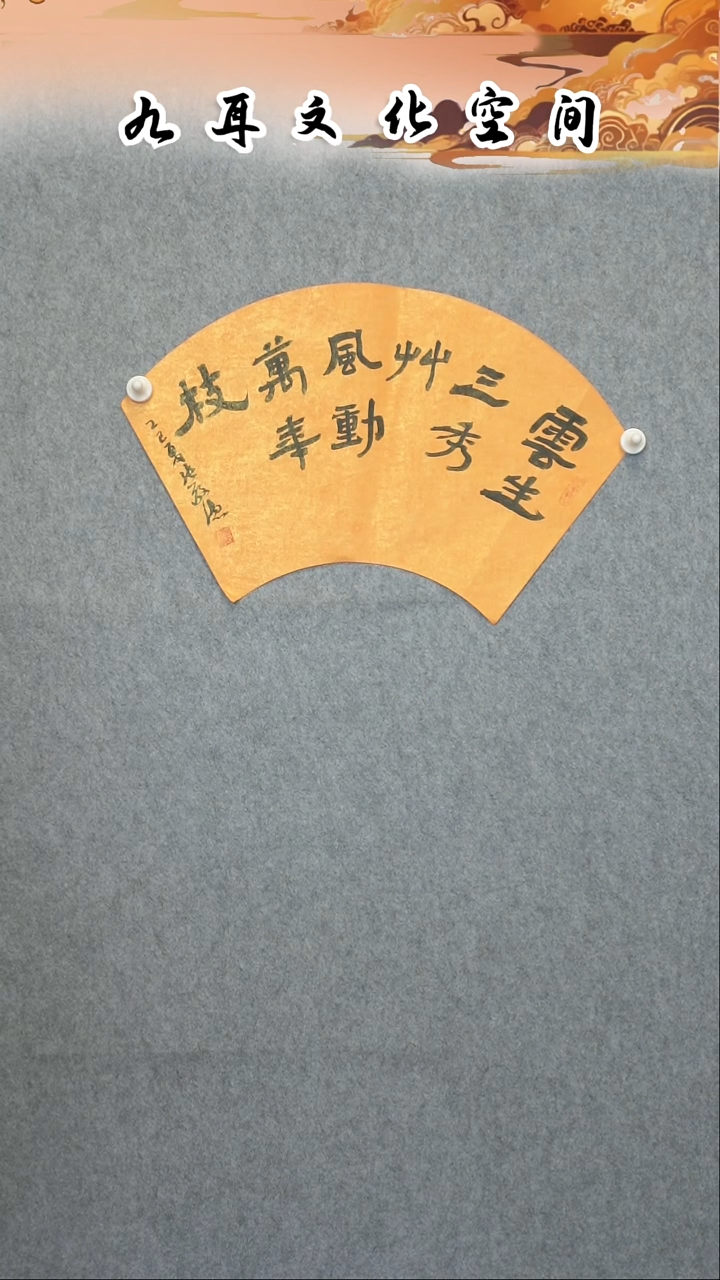 九耳文化空间
雲生
三秀
艸
風動
萬年
枝
乙巳夏